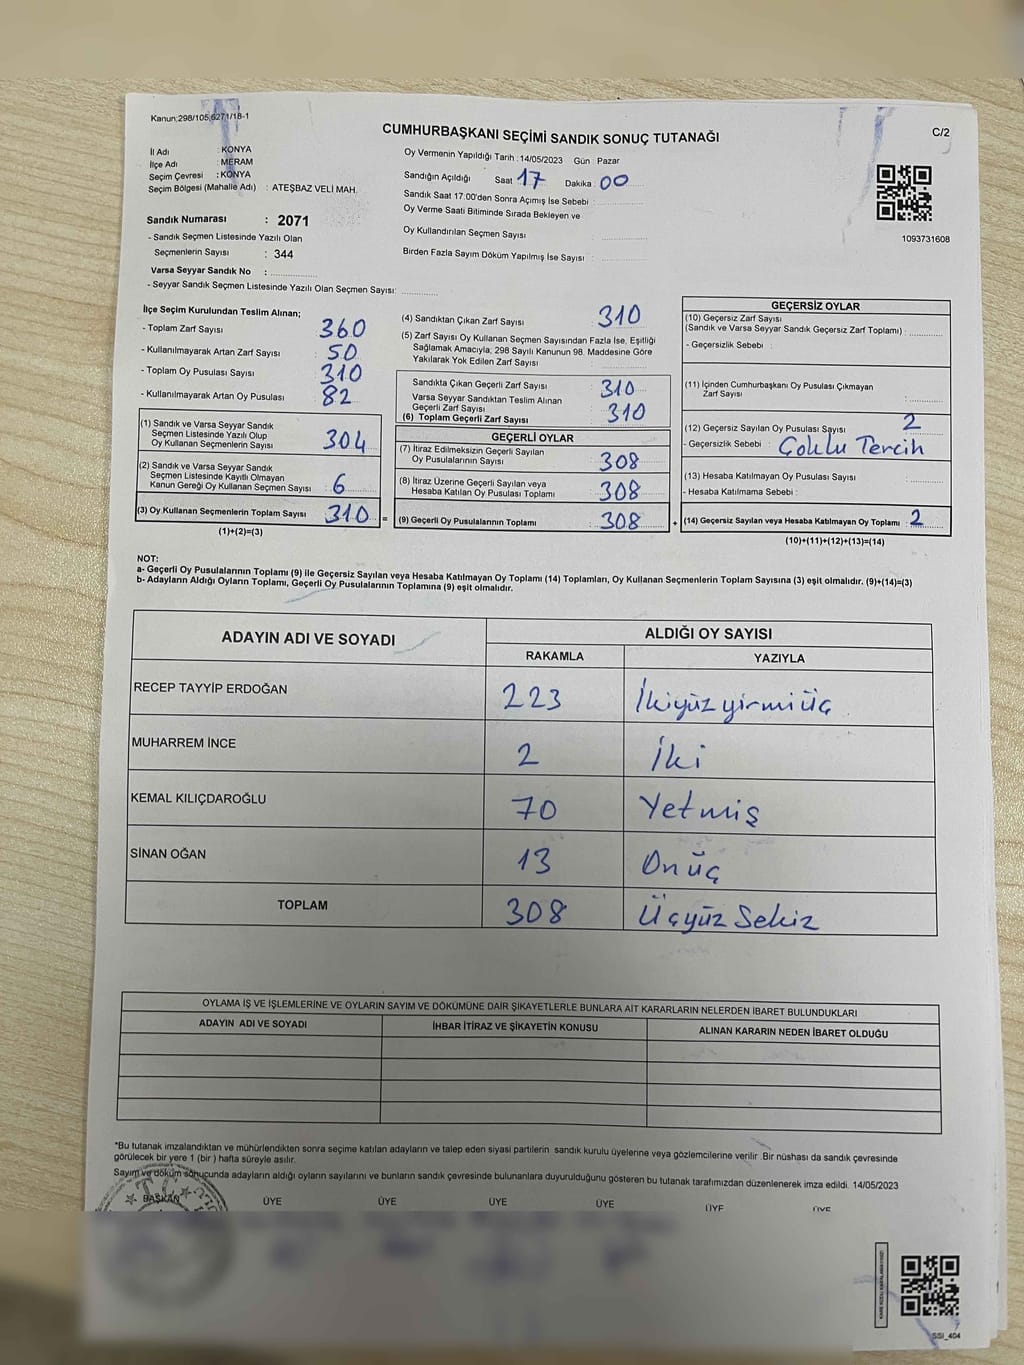 Kanun:298/105,6271/18-1
CUMHURBAŞKANI SEÇİMİ SANDIK SONUÇ TUTANAĞI
C/2
İl Adı : KONYA
İlçe Adı : MERAM
Seçim Çevresi : KONYA
Seçim Bölgesi (Mahalle Adı) : ATEŞBAZ VELİ MAH.
Oy Vermenin Yapıldığı Tarih : 14/05/2023 Gün Pazar
Sandığın Açıldığı Saat 17 Dakika : 00
Sandık Saat 17:00'den Sonra Açımış İse Sebebi :
Oy Verme Saati Bitiminde Sırada Bekleyen ve
Oy Kullandırılan Seçmen Sayısı
Birden Fazla Sayım Döküm Yapılmış İse Sayısı :
1093731608
Sandık Numarası : 2071
- Sandık Seçmen Listesinde Yazılı Olan
Seçmenlerin Sayısı : 344
Varsa Seyyar Sandık No :
- Seyyar Sandık Seçmen Listesinde Yazılı Olan Seçmen Sayısı:
İlçe Seçim Kurulundan Teslim Alınan;
- Toplam Zarf Sayısı : 360
- Kullanılmayarak Artan Zarf Sayısı : 50
- Toplam Oy Pusulası Sayısı : 310
- Kullanılmayarak Artan Oy Pusulası : 82
(1) Sandık ve Varsa Seyyar Sandık
Seçmen Listesinde Yazılı Olup
Oy Kullanan Seçmenlerin Sayısı : 304
(2) Sandık ve Varsa Seyyar Sandık
Seçmen Listesinde Kayıtlı Olmayan
Kanun Gereği Oy Kullanan Seçmen Sayısı : 6
(3) Oy Kullanan Seçmenlerin Toplam Sayısı : 310 =
(1)+(2)=(3)
(4) Sandıktan Çıkan Zarf Sayısı : 310
(5) Zarf Sayısı Oy Kullanan Seçmen Sayısından Fazla İse, Eşitliği
Sağlamak Amacıyla, 298 Sayılı Kanunun 98. Maddesine Göre
Yakılarak Yok Edilen Zarf Sayısı :
Sandıkta Çıkan Geçerli Zarf Sayısı : 310
Varsa Seyyar Sandıktan Teslim Alınan
Geçerli Zarf Sayısı
(6) Toplam Geçerli Zarf Sayısı : 310
GEÇERLİ OYLAR
(7) İtiraz Edilmeksizin Geçerli Sayılan
Oy Pusulalarının Sayısı : 308
(8) İtiraz Üzerine Geçerli Sayılan veya
Hesaba Katılan Oy Pusulası Toplamı : 308
(9) Geçerli Oy Pusulalarının Toplamı : 308 +
GEÇERSİZ OYLAR
(10) Geçersiz Zarf Sayısı
(Sandık ve Varsa Seyyar Sandık Geçersiz Zarf Toplamı) :
- Geçersizlik Sebebi :
(11) İçinden Cumhurbaşkanı Oy Pusulası Çıkmayan
Zarf Sayısı :
(12) Geçersiz Sayılan Oy Pusulası Sayısı : 2
- Geçersizlik Sebebi : Çoklu Tercih
(13) Hesaba Katılmayan Oy Pusulası Sayısı :
- Hesaba Katılmama Sebebi :
(14) Geçersiz Sayılan veya Hesaba Katılmayan Oy Toplamı : 2
(10)+(11)+(12)+(13)=(14)
NOT:
a- Geçerli Oy Pusulalarının Toplamı (9) ile Geçersiz Sayılan veya Hesaba Katılmayan Oy Toplamı (14) Toplamları, Oy Kullanan Seçmenlerin Toplam Sayısına (3) eşit olmalıdır. (9)+(14)=(3)
b- Adayların Aldığı Oyların Toplamı, Geçerli Oy Pusulalarının Toplamına (9) eşit olmalıdır.
ADAYIN ADI VE SOYADI
ALDIĞI OY SAYISI
RAKAMLA YAZIYLA
RECEP TAYYİP ERDOĞAN 223 İkiyüz yirmi üç
MUHARREM İNCE 2 İki
KEMAL KILIÇDAROĞLU 70 Yetmiş
SİNAN OĞAN 13 On üç
TOPLAM 308 Üçyüz Sekiz
OYLAMA İŞ VE İŞLEMLERİNE VE OYLARIN SAYIM VE DÖKÜMÜNE DAİR ŞİKAYETLERLE BUNLARA AİT KARARLARIN NELERDEN İBARET BULUNDUKLARI
ADAYIN ADI VE SOYADI İHBAR İTİRAZ VE ŞİKAYETİN KONUSU ALINAN KARARIN NEDEN İBARET OLDUĞU
*Bu tutanak imzalandıktan ve mühürlendikten sonra seçime katılan adayların ve talep eden siyasi partilerin sandık kurulu üyelerine veya gözlemcilerine verilir .Bir nüshası da sandık çevresinde
görülecek bir yere 1 (bir ) hafta süreyle asılır.
Sayım ve döküm sonucunda adayların aldığı oyların sayılarını ve bunların sandık çevresinde bulunanlara duyurulduğunu gösteren bu tutanak tarafımızdan düzenlenerek imza edildi. 14/05/2023
BAŞKAN ÜYE ÜYE ÜYE ÜYE ÜYE ÜYE
SSİ_404